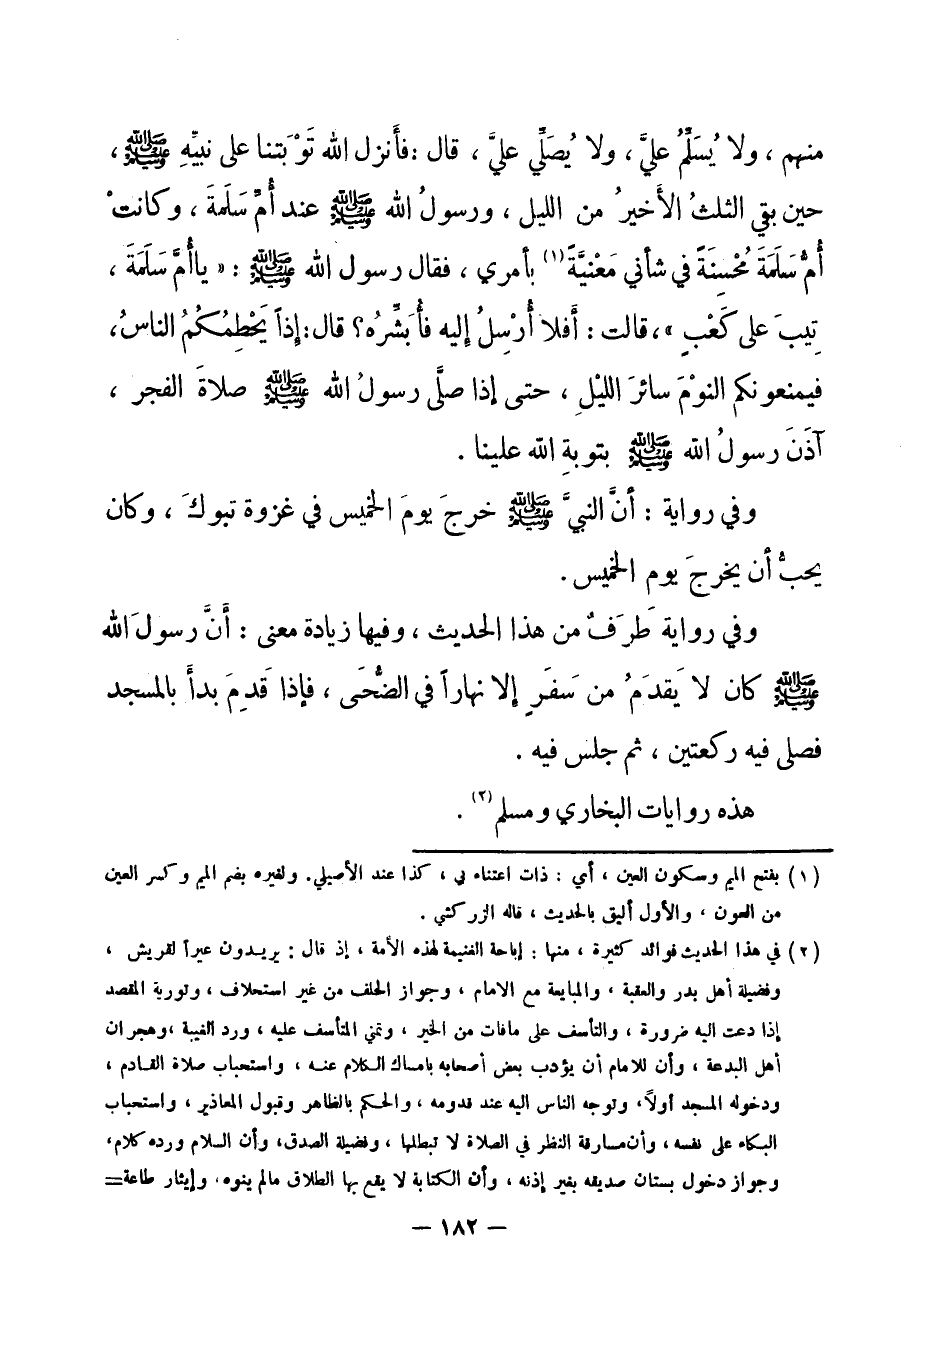 منهم ، ولا يُسَلِّمُ عليَّ ، ولا يُصَلِّي عليَّ ، قال : فأَنزل الله تَوْبَتنا على نبيِّهِ ﷺ ،
حين بقي الثلثُ الأَخيرُ من الليل ، ورسولُ الله ﷺ عند أُمِّ سَلَمَةَ ، وكانتْ
أُمُّ سَلَمَةَ مُحْسِنَةً في شأني مَعْنيَّةً (١) بأمري ، فقال رسول الله ﷺ : « ياأُمَّ سَلَمَةَ ،
تِيبَ على كَعْبٍ » ، قالت : أَفلا أُرْسِلُ إليه فأُبَشِّرُه؟ قال : إذاً يَحْطِمُكُمُ الناسُ،
فيمنعونكم النومَ سائرَ الليْلِ ، حتى إذا صلَّى رسولُ الله ﷺ صلاةَ الفجر ،
آذَنَ رسولُ الله ﷺ بتوبةِ الله علينا .
وفي رواية : أَنَّ النبيَّ ﷺ خرجَ يومَ الخميس في غزوة تبوكَ ، وكان
يحبُّ أن يخرجَ يوم الخميس .
وفي رواية طَرَفٌ من هذا الحديث ، وفيها زيادة معنى : أَنَّ رسولَ الله
ﷺ كان لا يَقدَمُ من سَفَرٍ إلا نهاراً في الضُّحَى ، فإذا قَدِمَ بدأَ بالمسجد
فصلى فيه ركعتين ، ثم جلس فيه .
هذه روايات البخاري ومسلم (٢) .
(١) بفتح الميم وسكون العين ، أي : ذات اعتناء بي ، كذا عند الأصيلي. ولغيره بضم الميم وكسر العين
من العون ، والأول أليق بالحديث ، قاله الزركشي .
(٢) في هذا الحديث فوائد كثيرة ، منها : إباحة الغنيمة لهذه الأمة ، إذ قال : يريدون عيراً لقريش ،
وفضيلة أهل بدر والعقبة ، والمبايعة مع الامام ، وجواز الحلف من غير استحلاف ، وتورية المقصد
إذا دعت اليه ضرورة ، والتأسف على مافات من الخير ، وتمني المتأسف عليه ، ورد الغيبة ، وهجران
أهل البدعة ، وأن للامام أن يؤدب بعض أصحابه بامساك الكلام عنه ، واستحباب صلاة القادم ،
ودخوله المسجد أولاً، وتوجه الناس اليه عند قدومه ، والحكم بالظاهر وقبول المعاذير ، واستحباب
البكاء على نفسه ، وأن مسارقة النظر في الصلاة لا تبطلها ، وفضيلة الصدق، وأن السلام ورده كلام،
وجواز دخول بستان صديقه بغير إذنه ، وأن الكتابة لا يقع بها الطلاق مالم ينوه، وإيثار طاعة=
— ١٨٢ —